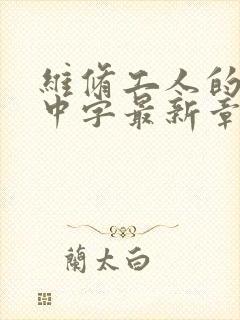 維脩工人的
中字最新章
蘭太白